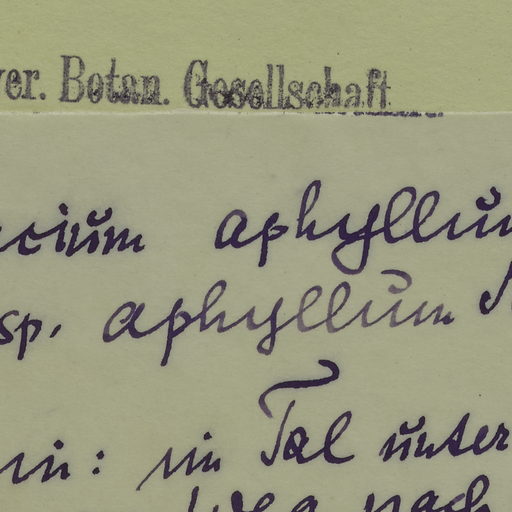 er. Botan. Gesellschaft
cium aphyllu
sp. aphyllum
in: im Tal unter
Weg nach